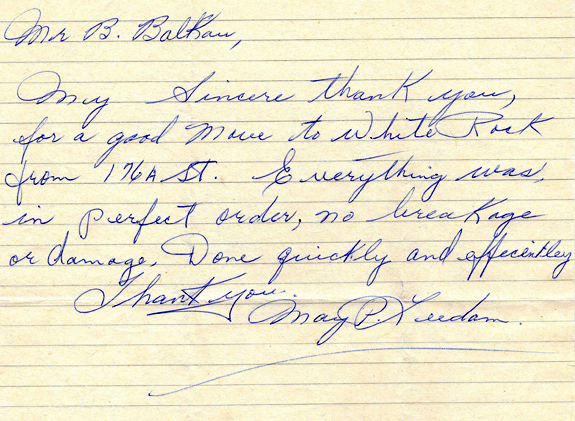 Mr B. Balkau,
My Sincere thank you,
for a good Move to White Rock
from 176A St. Everything was,
in perfect order, no breakage
or damage. Done quickly and efficientley
Thank you.
May P. Leedam.